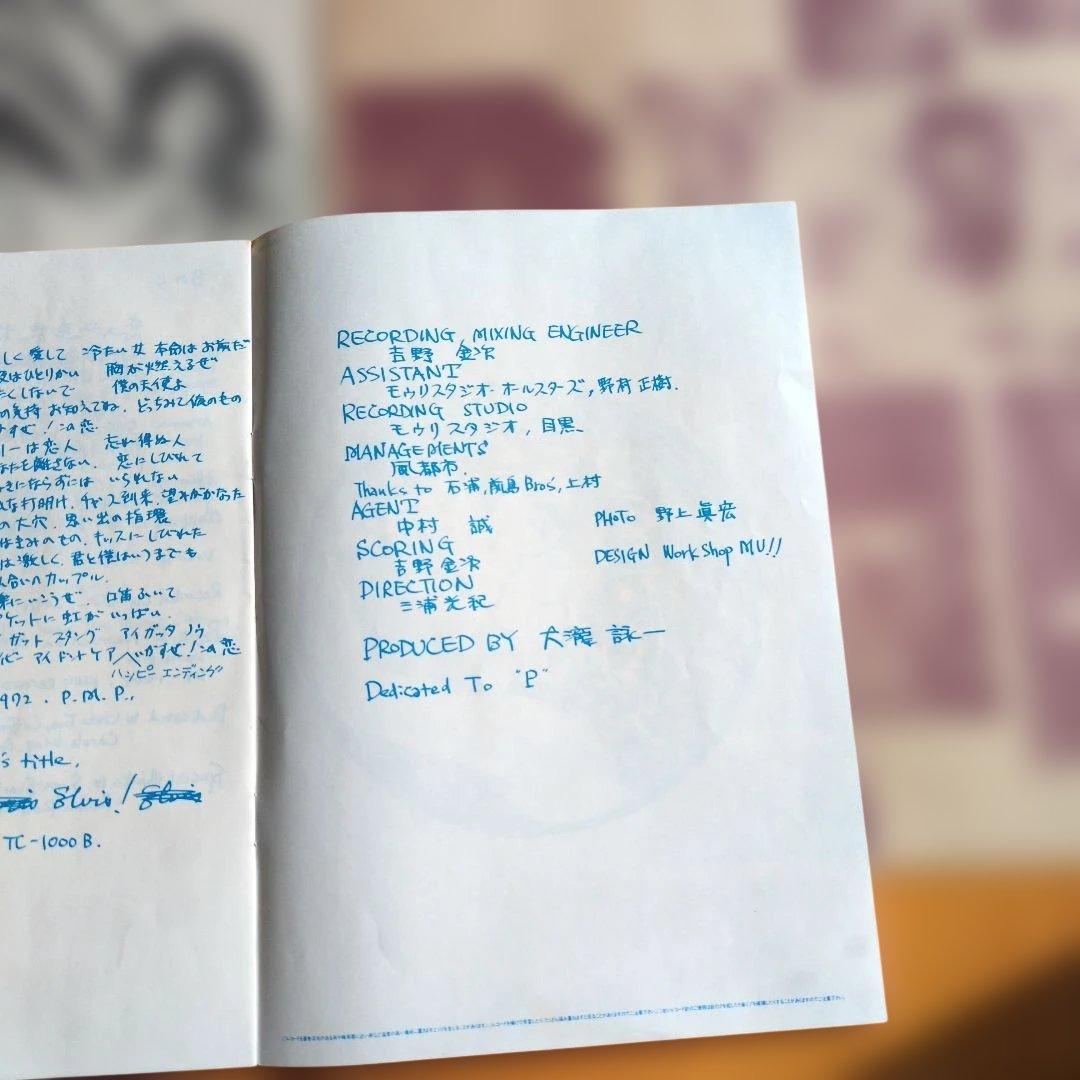 しく愛して 冷たい女 本命はお前だ
はひとりかい 胸が燃えるぜ
たくしないで 僕の天使よ
の気持 お知えてね. どっちみち俺のもの
すぜ!この恋.
リーは恋人 忘れ得ぬ人
なたを離さない. 恋にしびれて
きにならずには いられない
な打明け. チャンス到来. 望みがかなった
の大穴. 思い出の指環
はきみのもの. キッスにしびれた
は激しく. 君と僕はいつまでも
合いのカップル.
楽にいこうぜ. 口笛ふいて
ケットに虹がいっぱい.
ガット スタング アイガッタ ノウ
ビー アイ ドント ケア いかすぜ!この恋
ハッピー エンディング
972. P.M.P.,
's title,
Elvis!
TC-1000B.
RECORDING, MIXING ENGINEER
吉野 金次
ASSISTANT
モウリスタジオ オールスターズ, 野村 正樹.
RECORDING STUDIO
モウリスタジオ, 目黒.
MANAGEMENTS
風都市.
Thanks to 石浦, 前島Bros, 上村
AGENT
中村 誠
PHOTO 野上 眞宏
SCORING
吉野 金次
DESIGN WorkShop MU!!
DIRECTION
三浦 光紀
PRODUCED BY 大瀧 詠一
Dedicated To "P"